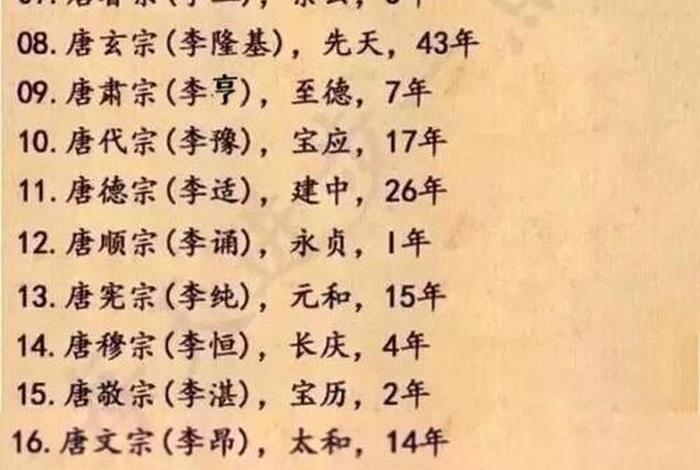 08.唐玄宗(李隆基)，先天，43年
09.唐肃宗(李亨)，至德，7年
10.唐代宗(李豫)，宝应，17年
11.唐德宗(李适)，建中，26年
12.唐顺宗(李诵)，永贞，1年
13.唐宪宗(李纯)，元和，15年
14.唐穆宗(李恒)，长庆，4年
15.唐敬宗(李湛)，宝历，2年
16.唐文宗(李昂)，太和，14年